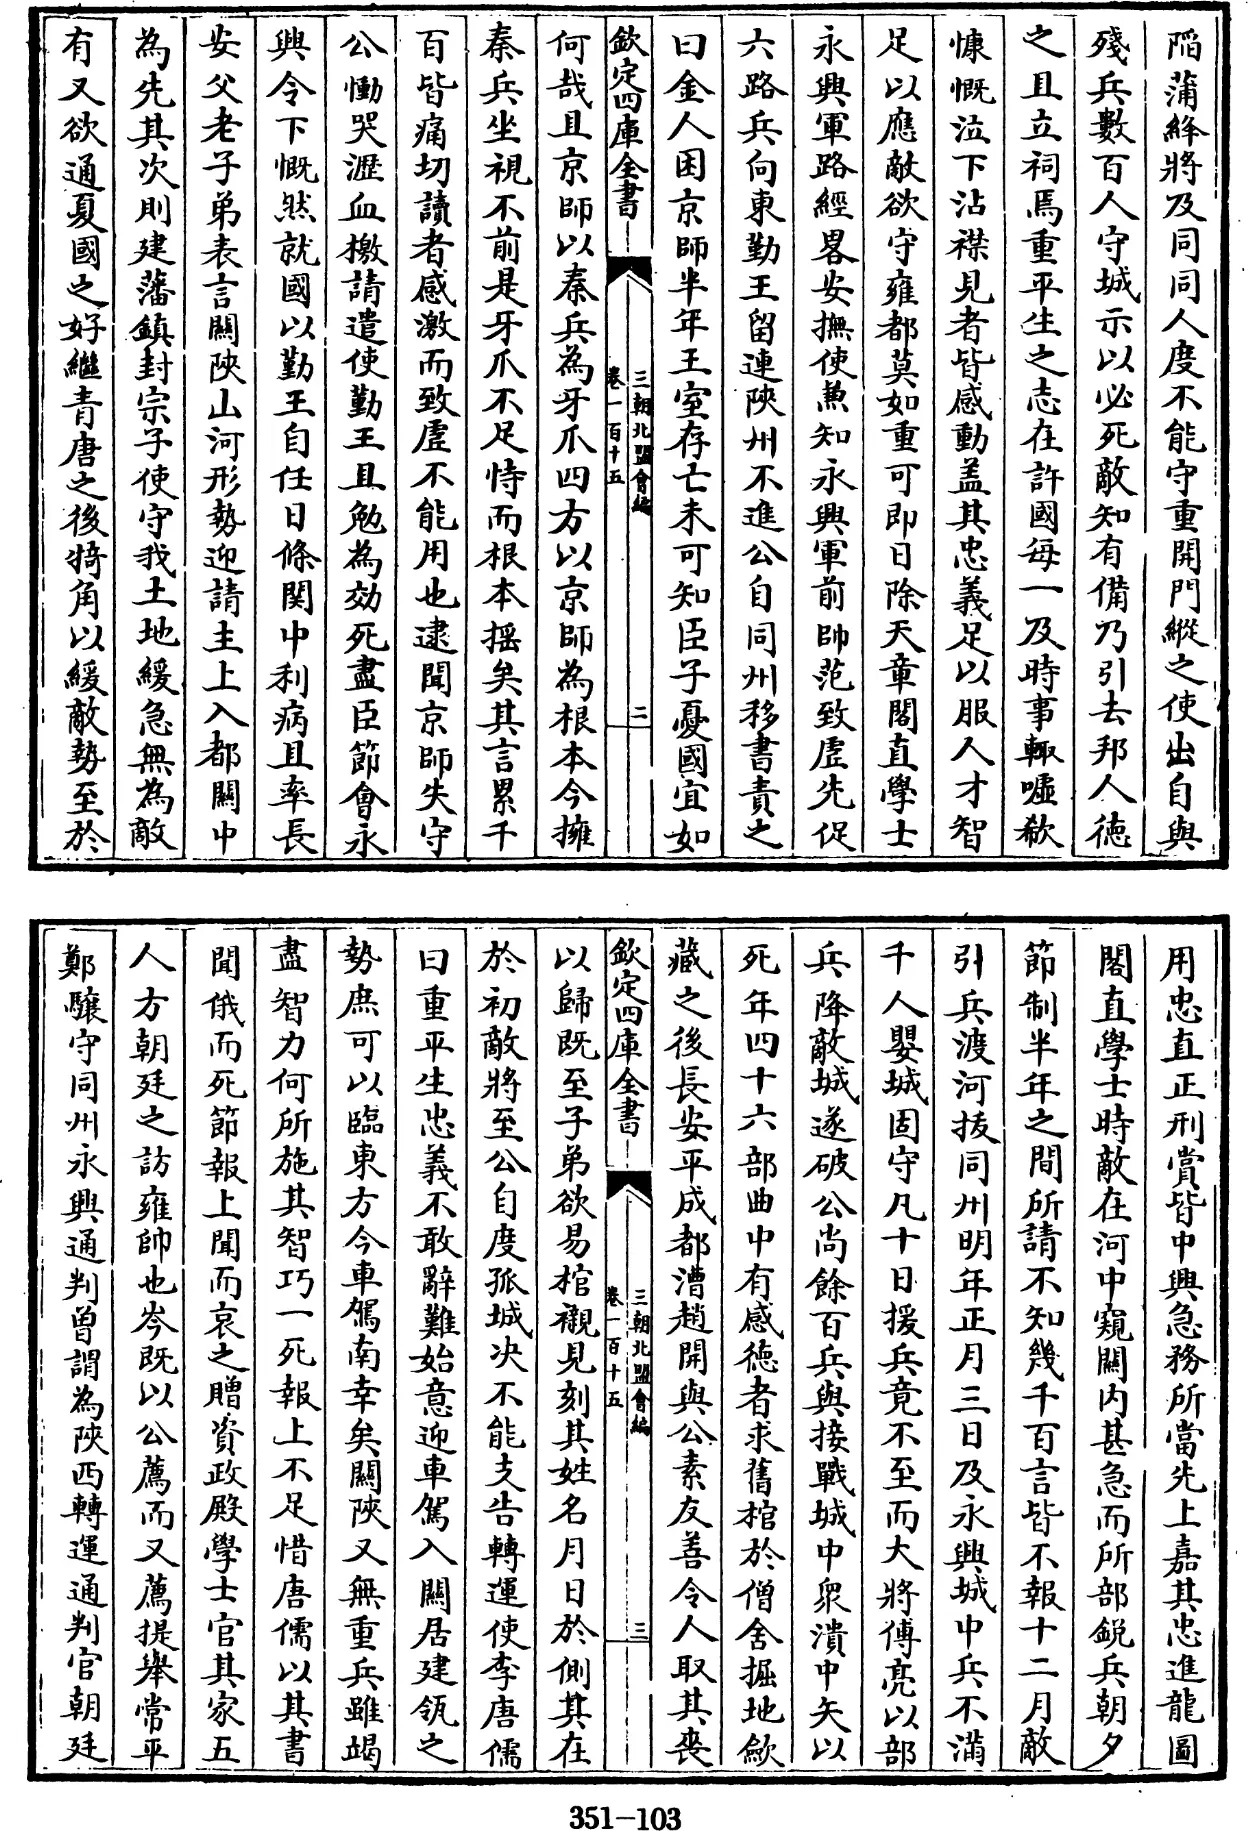 陷蒲絳將及同同人度不能守重開門縱之使出自與
殘兵數百人守城示以必死敵知有備乃引去邦人德
之且立祠焉重平生之志在許國每一及時事輒噓欷
慷慨泣下沾襟見者皆感動盖其忠義足以服人才智
足以應敵欲守雍都莫如重可即日除天章閣直學士
永興軍路經畧安撫使兼知永興軍前帥范致虛先促
六路兵向東勤王留連陜州不進公自同州移書責之
曰金人困京師半年王室存亡未可知臣子憂國宜如
欽定四庫全書
三朝北盟會編
卷一百十五
二
何哉且京師以秦兵為牙爪四方以京師為根本今擁
秦兵坐視不前是牙爪不足恃而根本揺矣其言累千
百皆痛切讀者感激而致虛不能用也逮聞京師失守
公慟哭瀝血檄請遣使勤王且勉為効死盡臣節會永
興令下慨然就國以勤王自任日條関中利病且率長
安父老子弟表言關陜山河形勢迎請主上入都關中
為先其次則建藩鎮封宗子使守我土地緩急無為敵
有又欲通夏國之好繼青唐之後犄角以緩敵勢至於
用忠直正刑賞皆中興急務所當先上嘉其忠進龍圖
閣直學士時敵在河中窺關内甚急而所部鋭兵朝夕
節制半年之間所請不知幾千百言皆不報十二月敵
引兵渡河拔同州明年正月三日及永興城中兵不滿
千人嬰城固守凡十日援兵竟不至而大將傅亮以部
兵降敵城遂破公尚餘百兵與接戰城中衆潰中矢以
死年四十六部曲中有感德者求舊棺於僧舍掘地歛
藏之後長安平成都漕趙開與公素友善令人取其喪
欽定四庫全書
三朝北盟會編
卷一百十五
三
以歸既至子弟欲易棺襯見刻其姓名月日於側其在
於初敵將至公自度孤城决不能支告轉運使李唐儒
曰重平生忠義不敢辭難始意迎車駕入關居建瓴之
勢庶可以臨東方今車駕南幸矣關陜又無重兵雖竭
盡智力何所施其智巧一死報上不足惜唐儒以其書
聞俄而死節報上聞而哀之贈資政殿學士官其家五
人方朝廷之訪雍帥也岑既以公薦而又薦提舉常平
鄭驤守同州永興通判曽謂為陜西轉運通判官朝廷
351-103